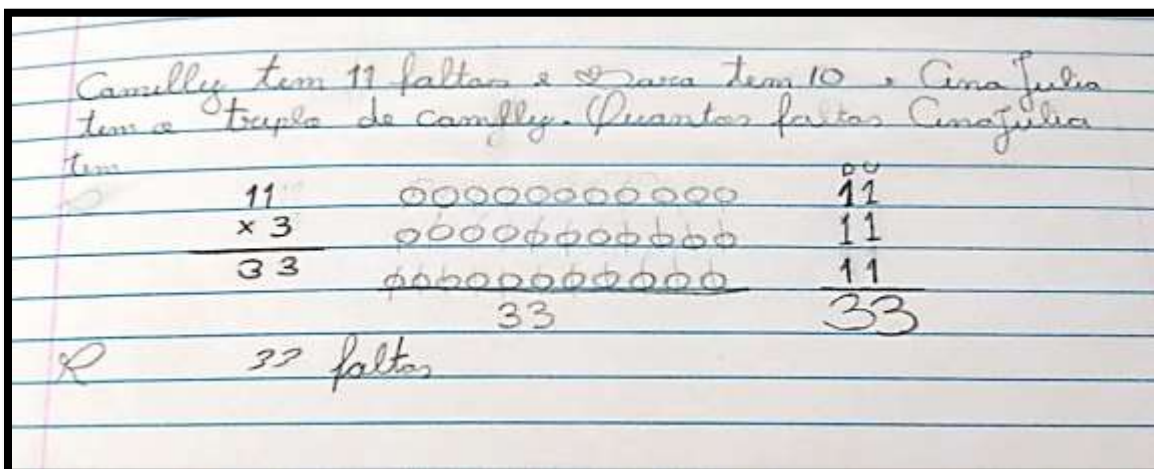 Camilly tem 11 faltas e Iara tem 10 . Ana Julia
tem o triplo de camylly. Quantas faltas Ana Julia
tem
D U
11 11
x 3 11
33 11
33 33
R 33 faltas